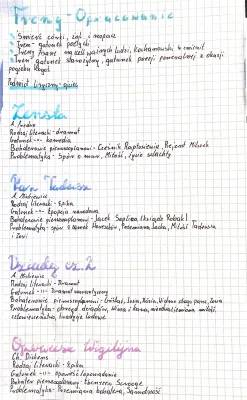 Treny - Opracowanie
Śmierć córki, żal, i rozpacz
Tren - gatunek poetycki
Treny Pisane na cześć ważnych ludzi, Kochanowski to zmienił
Tren gatunek starożytny, gatunek poezji pomeralnej z okazji
pogrzebu
Podmiot liryczny - ojciec
Zemsta
A. Fredro
Rodzaj literacki - dramat
Gatunek - komedia
Bohaterowie pierwszoplanowi - Cześnik Raptusiewicz, Rejent Milczek
Problematyka - Spór o mur, Miłość, życie szlachty
Pan Tadeusz
A. Mickiewicz
Rodzaj literacki - Epika
Gatunek -||- Epopeja narodowa
Bohaterowie pierwszoplanowi - Jacek Soplica (ksiądz Robak)
Problematyka - spór o zamek Horeszków, Przemiana Jacka, Miłość Tadeusza
i Zosi
Dziady cz. 2
A. Mickiewicz
Rodzaj literacki - Dramat
Gatunek -||- Dramat romantyczny
Bohaterowie pierwszoplanowi - Guślarz, Józio, Rózia, Widmo złego pana, Zosia
Problematyka - obrzęd dziadów, wina i kara, niedoceniona miłość,
człowieczeństwo, tradycje ludowe
Opowieść Wigilijna
Ch. Dickens
Rodzaj literacki - Epika
Gatunek -||- opowieść/opowiadanie
Bohater pierwszoplanowy - Ebenezer Scrooge
Problematyka - Przemiana bohatera, Samotność